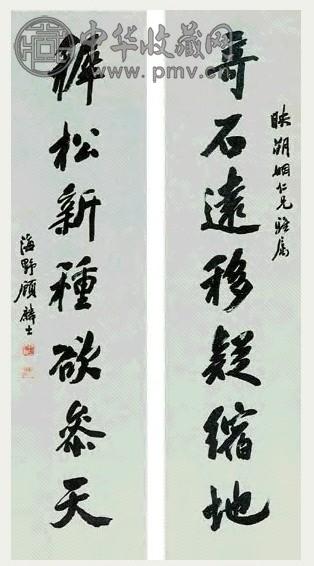 中华收藏网
www.pmv.cn
映湖姻仁兄雅屬
奇石遠移疑縮地
稺松新種欲參天
海野顧麟士